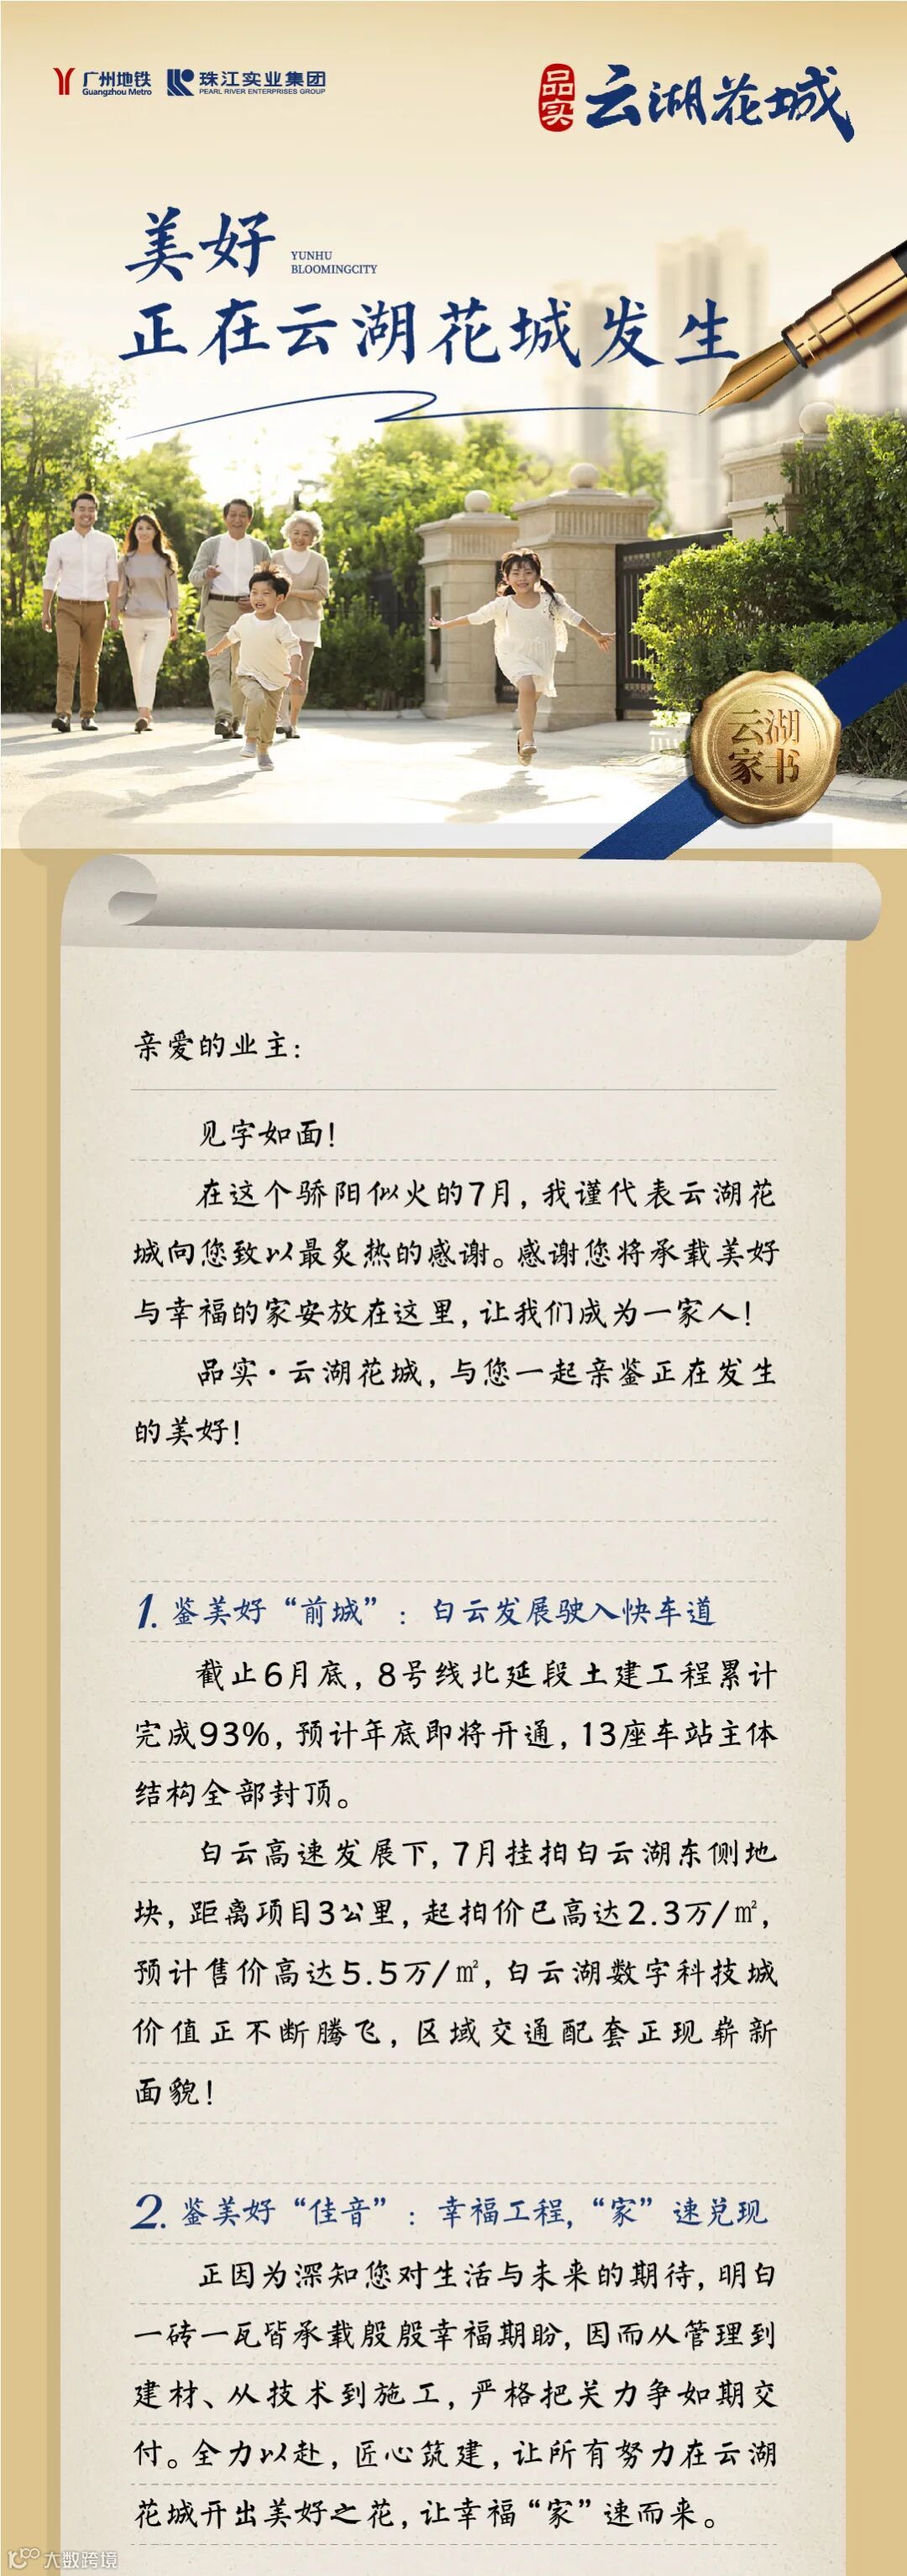 广州地铁
Guangzhou Metro
珠江实业集团
PEARL RIVER ENTERPRISES GROUP
品实
云湖花城
美好
YUNHU
BLOOMINGCITY
正在云湖花城发生
云湖
家书
亲爱的业主:
见字如面!
在这个骄阳似火的7月,我谨代表云湖花
城向您致以最炙热的感谢。感谢您将承载美好
与幸福的家安放在这里,让我们成为一家人!
品实·云湖花城,与您一起亲鉴正在发生
的美好!
1. 鉴美好“前城”: 白云发展驶入快车道
截止6月底,8号线北延段土建工程累计
完成93%,预计年底即将开通,13座车站主体
结构全部封顶。
白云高速发展下,7月挂拍白云湖东侧地
块,距离项目3公里,起拍价已高达2.3万/㎡,
预计售价高达5.5万/㎡,白云湖数字科技城
价值正不断腾飞,区域交通配套正现崭新
面貌!
2. 鉴美好“佳音”: 幸福工程,“家”速兑现
正因为深知您对生活与未来的期待,明白
一砖一瓦皆承载殷殷幸福期盼,因而从管理到
建材、从技术到施工,严格把关力争如期交
付。全力以赴,匠心筑建,让所有努力在云湖
花城开出美好之花,让幸福“家”速而来。
大数跨境